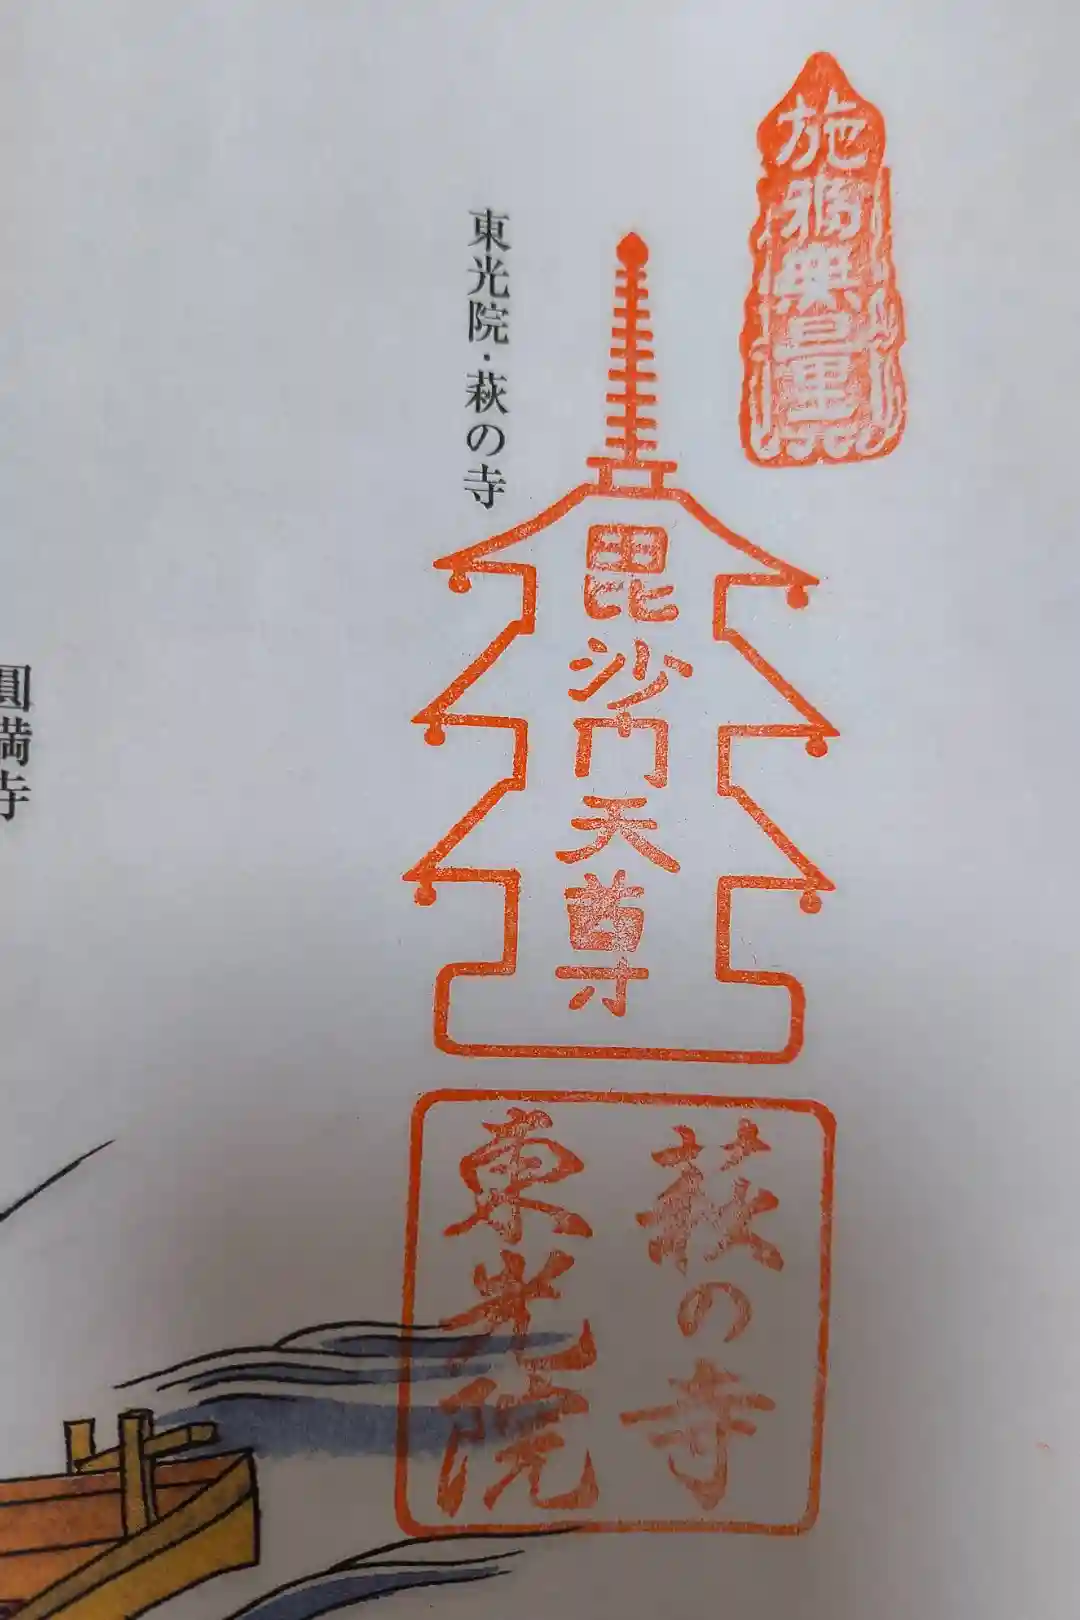 施無畏
東光院・萩の寺
毘沙門天尊
圓満寺
萩の寺
東光院